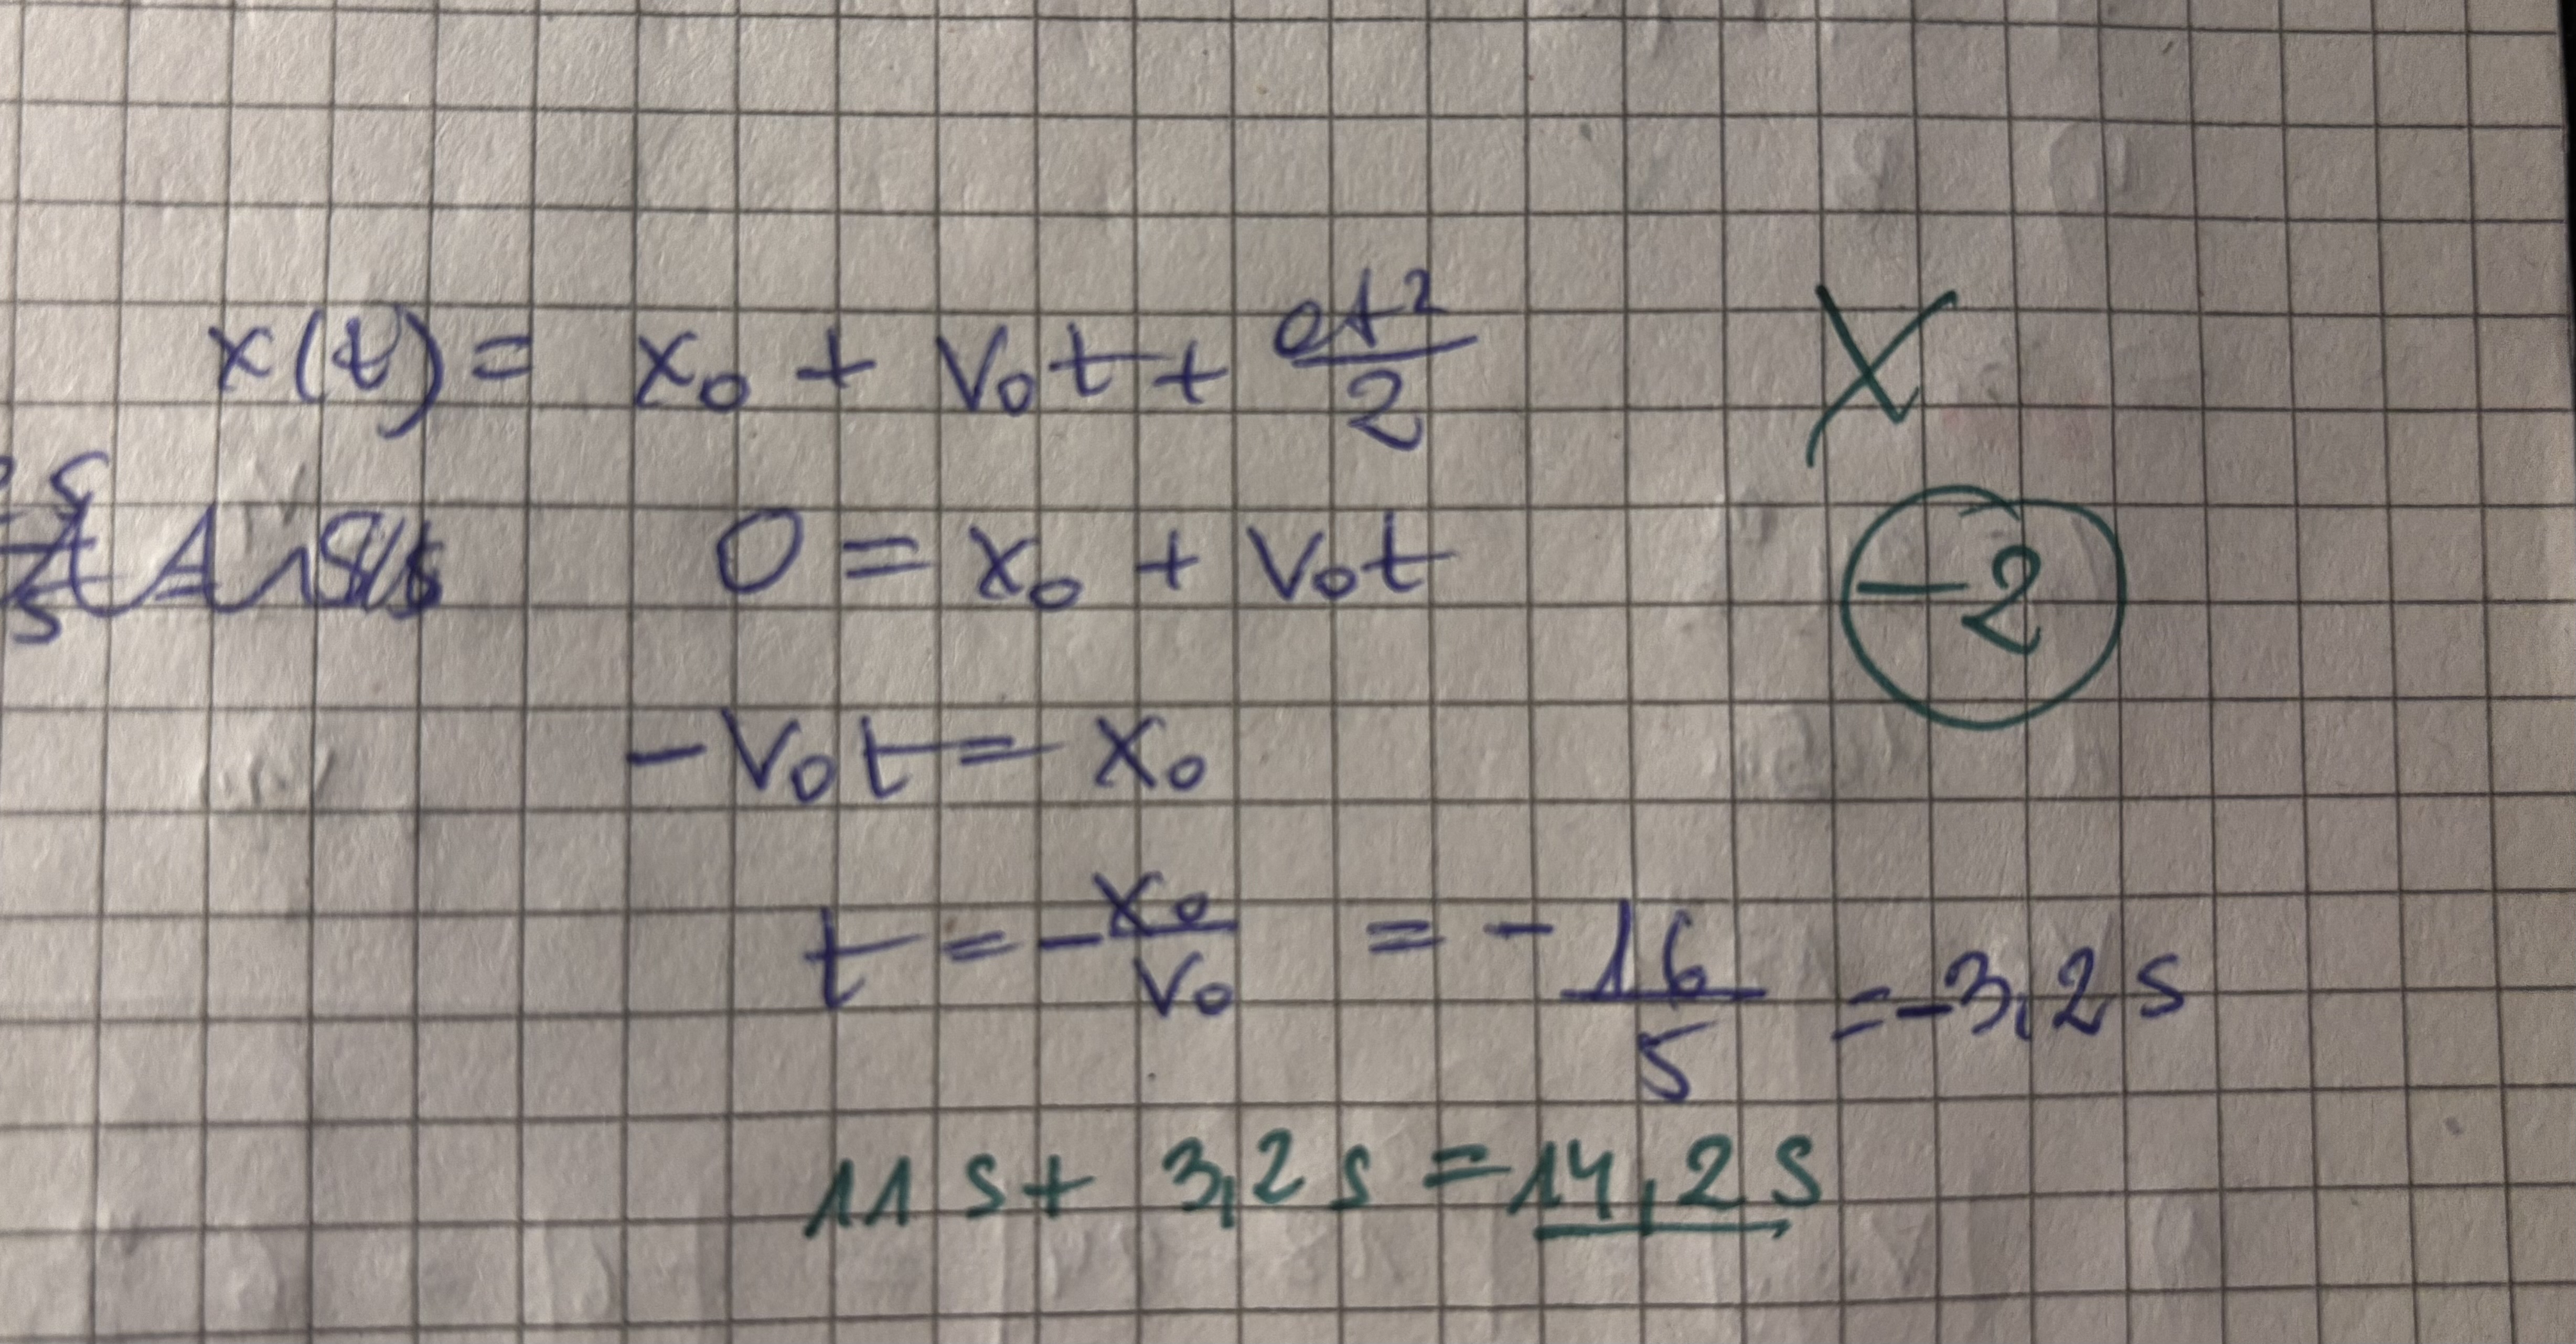 x(t) = x₀ + v₀t + at²/2
-2
0 = x₀ + v₀t
-v₀t = x₀
t = -x₀/v₀ = -16/5 = -3,2 s
11 s + 3,2 s = 14,2 s